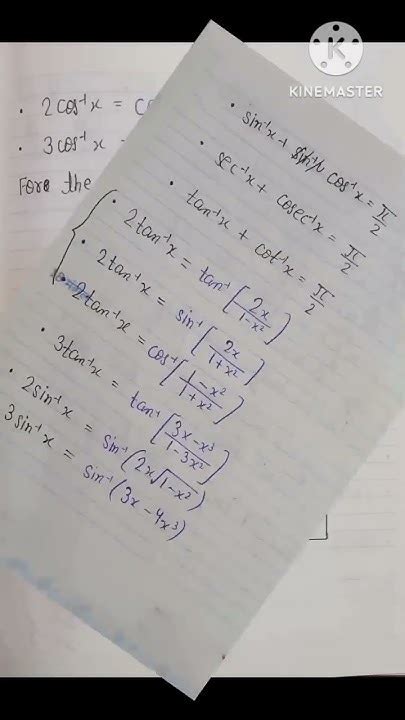 KINEMASTER
. 2cos⁻¹x = co
. 3cos⁻¹x
Fore the
. sin⁻¹x + cos⁻¹x = π/2
. sec⁻¹x + cosec⁻¹x = π/2
. tan⁻¹x + cot⁻¹x = π/2
. 2tan⁻¹x = tan⁻¹[2x/1-x²]
. 2tan⁻¹x = sin⁻¹[2x/1+x²]
2tan⁻¹x = cos⁻¹[1-x²/1+x²]
. 3tan⁻¹x = tan⁻¹[3x-x³/1-3x²]
. 2sin⁻¹x = sin⁻¹(2x√1-x²)
3sin⁻¹x = sin⁻¹(3x-4x³)